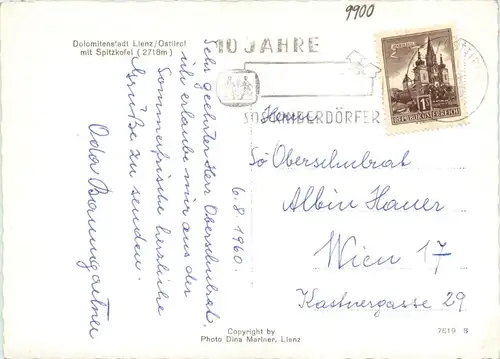 9900
Dolomitenstadt Lienz/Osttirol
mit Spitzkofel (2718m)
10 JAHRE
SOS KINDERDÖRFER
2
1S
REPUBLIK ÖSTERREICH
6.8.1960.
Sehr geehrter Herr Oberschulrat.
ich erlaube mir aus der
Sommerfrische herzliche
Grüße zu senden.
Oda Baumgartner
Herrn
Oberschulrat
Albin Hauer
Wien 17
Kastnergasse 29
Copyright by
Photo Dina Mariner, Lienz
7819 S